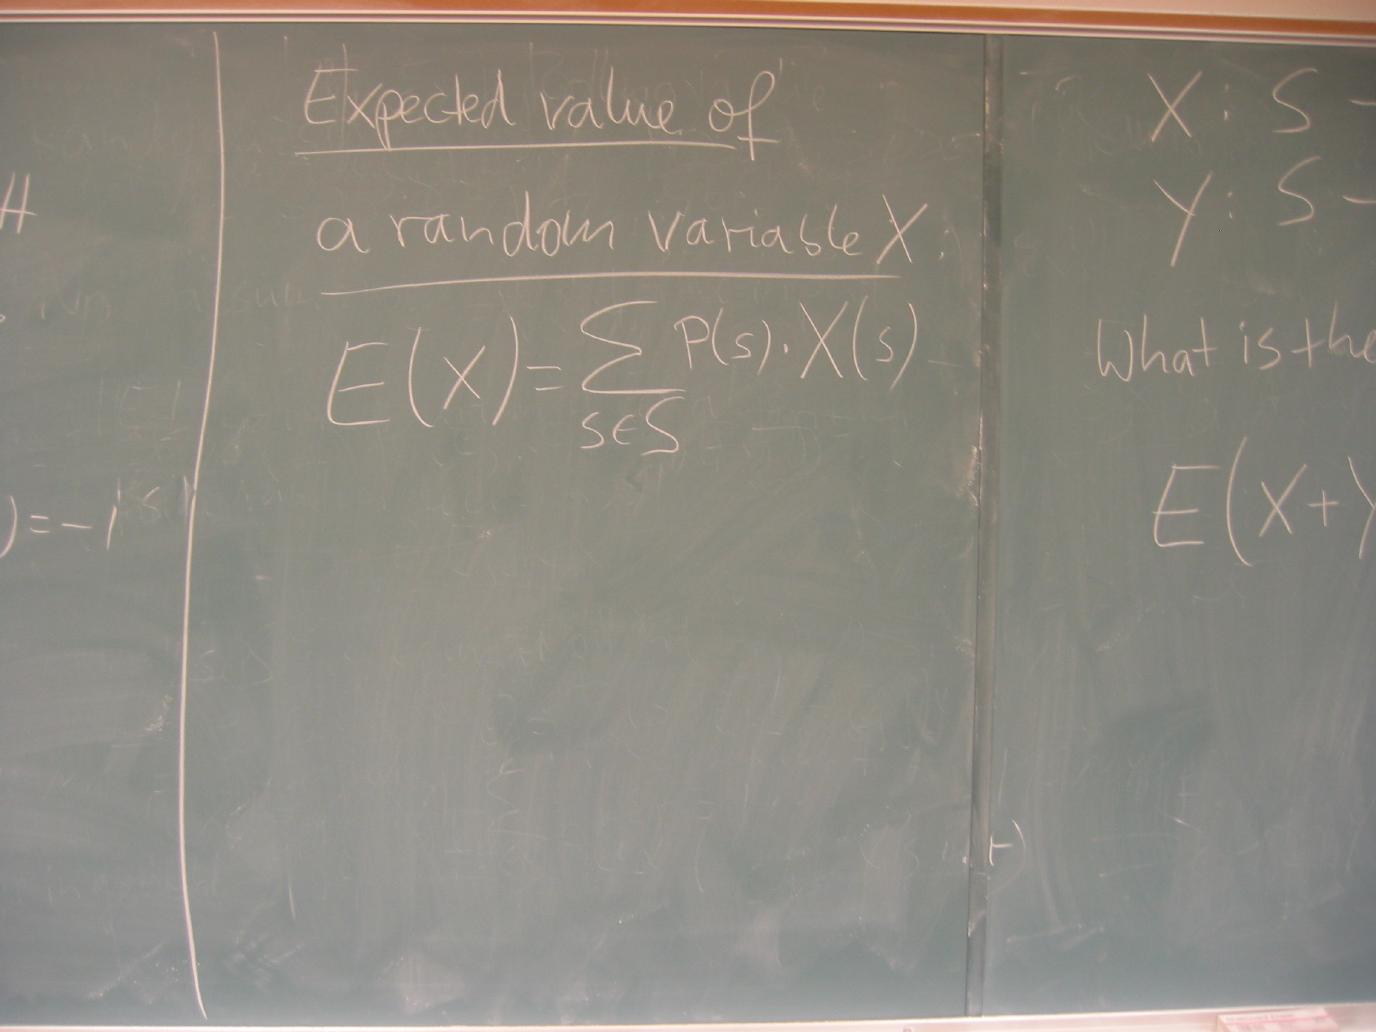 H
) = -1
Expected value of
a random variable X.
E(X) = ∑ P(s) · X(s)
s∈S
X : S -
Y : S -
What is the
E(X+Y